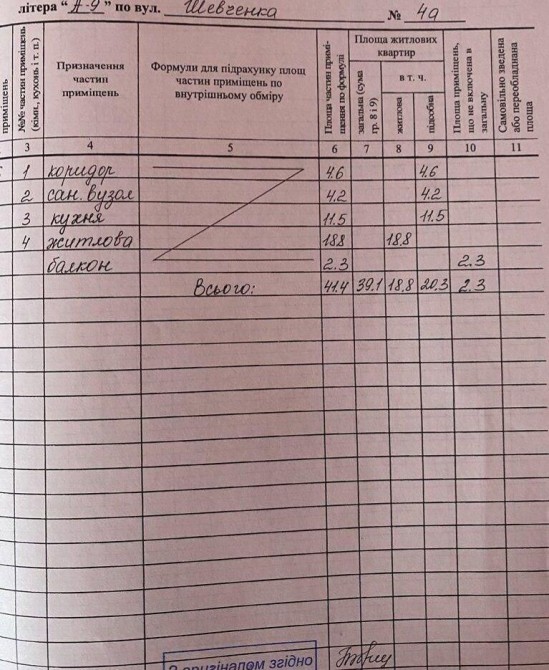 літера “А-9” по вул. Шевченка № 4а
приміщень
№№ частин приміщень (кімн., кухонь і т. п.)
Призначення частин приміщень
Формули для підрахунку площ частин приміщень по внутрішньому обміру
Площа частин приміщення по формулі
Площа житлових квартир
загальна (сума гр. 8 і 9)
в т. ч.
житлова
підсобна
Площа приміщень, що не включена в загальну
Самовільно зведена або переобладнана площа
3 4 5 6 7 8 9 10 11
1 коридор 4.6 4.6
2 сан. вузол 4.2 4.2
3 кухня 11.5 11.5
4 житлова 18.8 18.8
балкон 2.3 2.3
Всього: 41.4 39.1 18.8 20.3 2.3
З оригіналом згідно